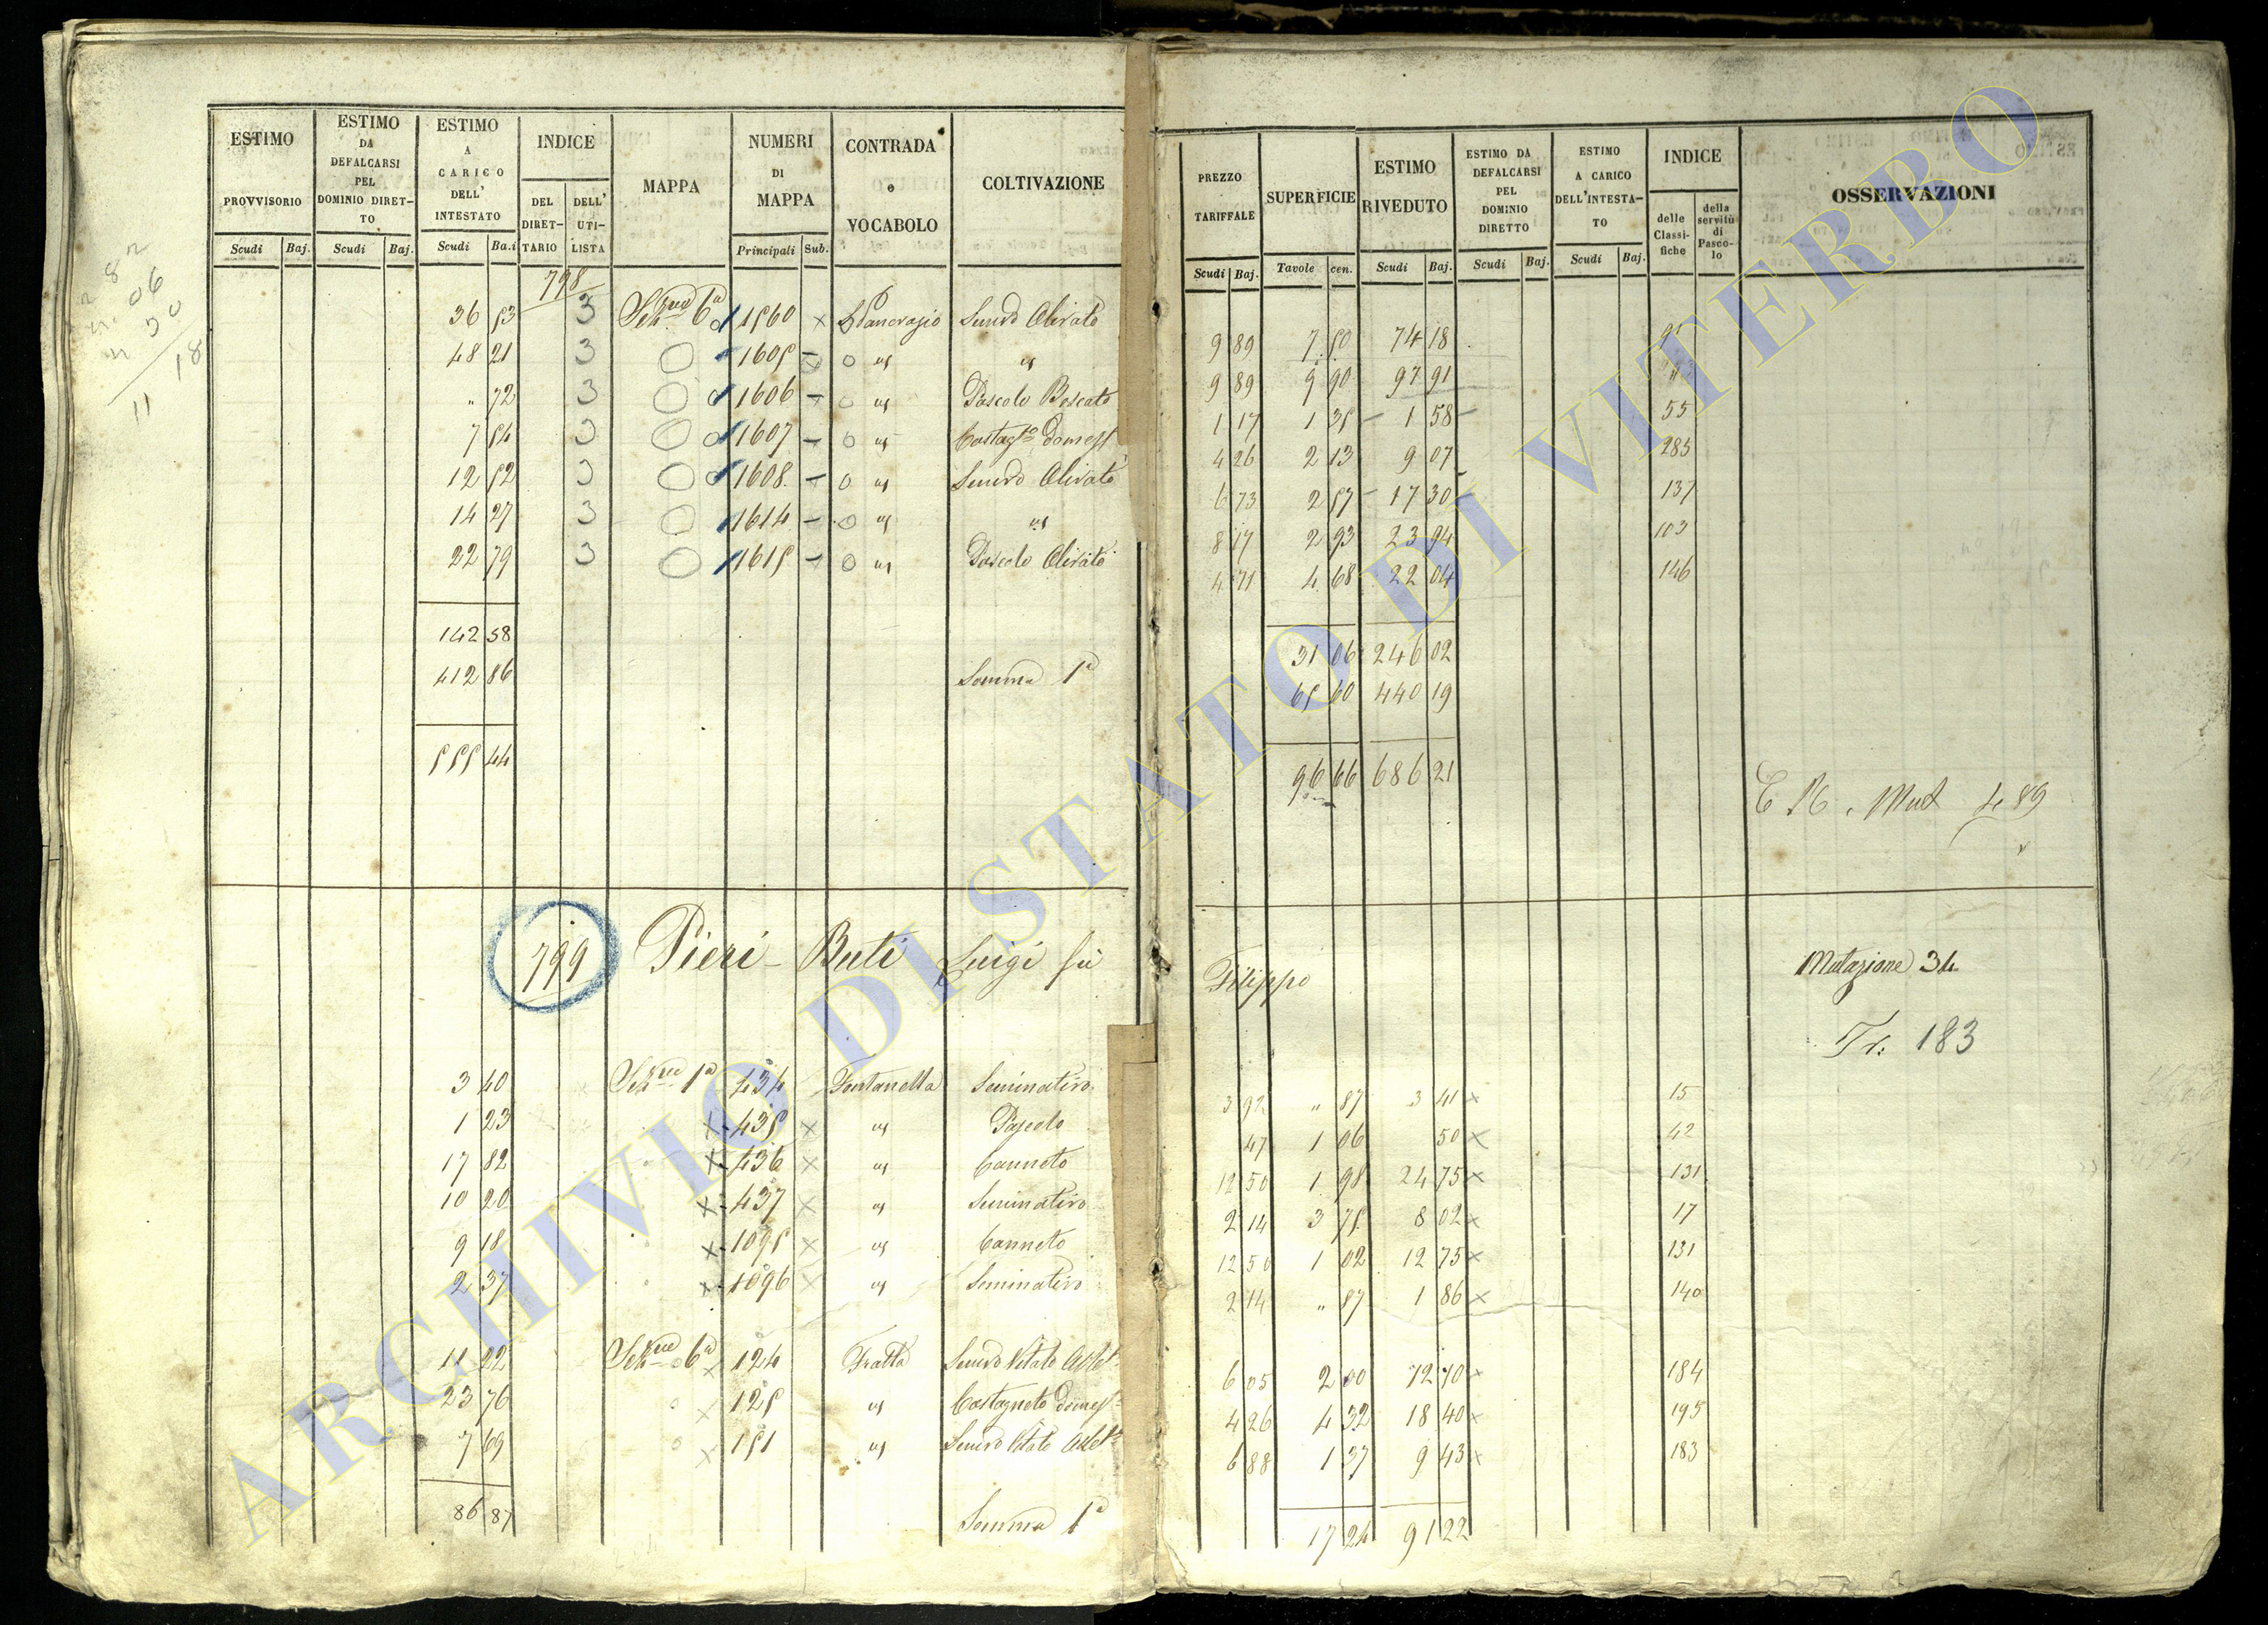 ESTIMO PROVVISORIO Scudi Baj.
ESTIMO DA DEFALCARSI PEL DOMINIO DIRET-TO Scudi Baj.
ESTIMO A CARICO DELL' INTESTATO Scudi Ba.i
INDICE DEL DIRET-TARIO DELL' UTI-LISTA
MAPPA
NUMERI DI MAPPA Principali Sub.
CONTRADA e VOCABOLO
COLTIVAZIONE
PREZZO TARIFFALE Scudi Baj.
SUPERFICIE Tavole cen.
ESTIMO RIVEDUTO Scudi Baj.
ESTIMO DA DEFALCARSI PEL DOMINIO DIRETTO Scudi Baj.
ESTIMO A CARICO DELL'INTESTA-TO Scudi Baj.
INDICE delle Classi-fiche della servitù di Pasco-lo
OSSERVAZIONI
798
36 53 3 6a 1560 Olivato 9 89 7 50 74 18 91
48 21 3 1605 9 89 9 90 97 91
" 72 3 1606 Pascolo Boscato 1 17 1 35 1 58 55
7 54 3 1607 4 26 2 13 9 07 285
12 52 3 1608 Olivato 6 73 2 57 17 30 137
14 27 3 1614 8 17 2 93 23 94 103
22 79 3 1615 Pascolo Olivato 4 71 4 68 22 04 146
142 58 31 06 246 02
412 86 Somma 1a 65 60 440 19
555 44 96 66 686 21
Mut 489
799 Pieri - Buti Luigi fù Filippo Mutazione 34
Tr. 183
3 40 1a 434 Fontanella Seminativo 3 92 " 87 3 41 15
1 23 435 Pascolo 47 1 06 50 42
17 82 436 Canneto 12 50 1 98 24 75 131
10 20 437 Seminativo 2 14 3 75 8 02 17
9 18 1095 Canneto 12 50 1 02 12 75 131
2 37 1096 Seminativo 2 14 " 87 1 86 140
11 22 6a 124 Fratta 6 05 2 00 12 10 184
23 76 125 Castagneto 4 26 4 32 18 40 195
7 69 151 6 88 1 37 9 43 183
86 87 Somma 1a 17 24 91 22
ARCHIVIO DI STATO DI VITERBO